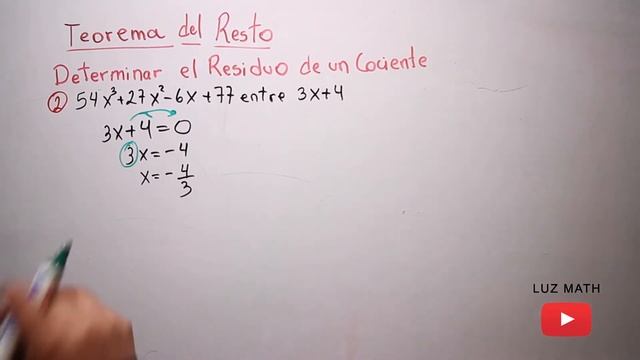 Teorema del Resto
Determinar el Residuo de un Cociente
② 54x³+27x²-6x+77 entre 3x+4
3x+4=0
3x=-4
x=-4/3
LUZ MATH